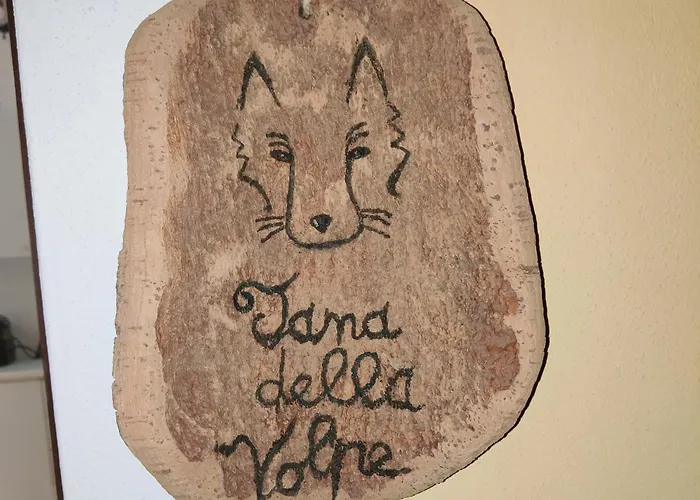 Tana
della
Volpe